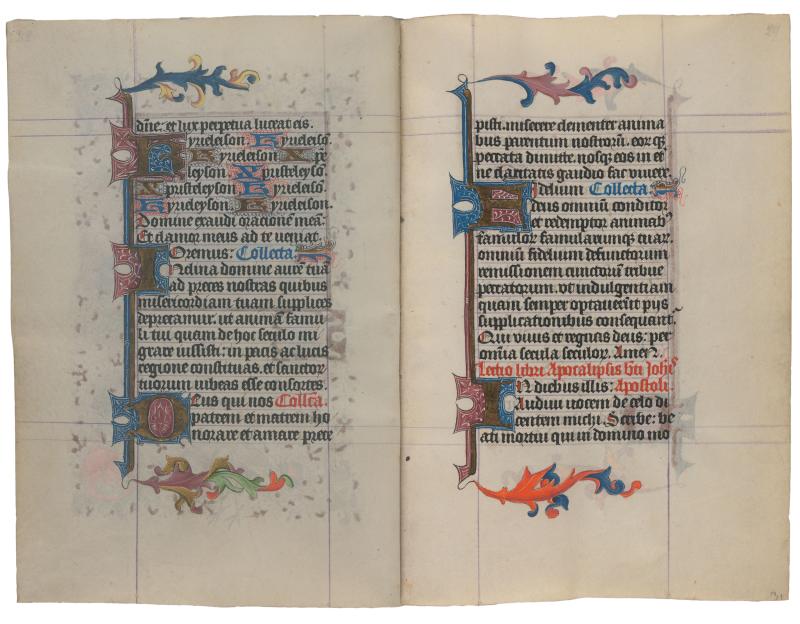 dn̄e: et lux perpetua luceat eis.
Kyrieleison. Kyrieleisō.
Kyrieleison Xpe
leyson Xpisteleyson.
Xpisteleyson Kyrieleisō.
Kyrieleyson Kyrieleison.
Domine exaudi orationē meā.
Et clamor meus ad te veniat.
Oremus: Collecta.
Inclina domine aurē tuā
ad preces nostras quibus
misericordiam tuam supplices
deprecamur. ut animā famu
li tui quam de hoc seculo mi
grare iussisti: in pacis ac lucis
regione constituas. et sanctor
tuorum iubeas esse consortes.
Deus qui nos Collcā.
patrem et matrem ho
norare et amare prece
pisti. miserere clementer anima
bus parentum nostrorū. eorqꝫ
peccata dimitte. nosqꝫ eos in et
ne claritatis gaudio fac vivere.
Fidelium Collecta.
deus omniū conditor
et redemptor animabꝰ
famulor famularumqꝫ tuar.
omniū fidelium defunctorum
remissionem cunctorum tribue
peccatorum. vt indulgentiam
quam semper optaverūt pijs
supplicationibus consequant̄.
Qui vivis et regnas deus: per
om̄ia secula seculor. Amen.
Lectio libri Apocalipsis bt̄i Johēs
In diebus illis: Apostoli
Audivi vocem de celo di
centem michi. Scribe: be
ati mortui qui in domino mo